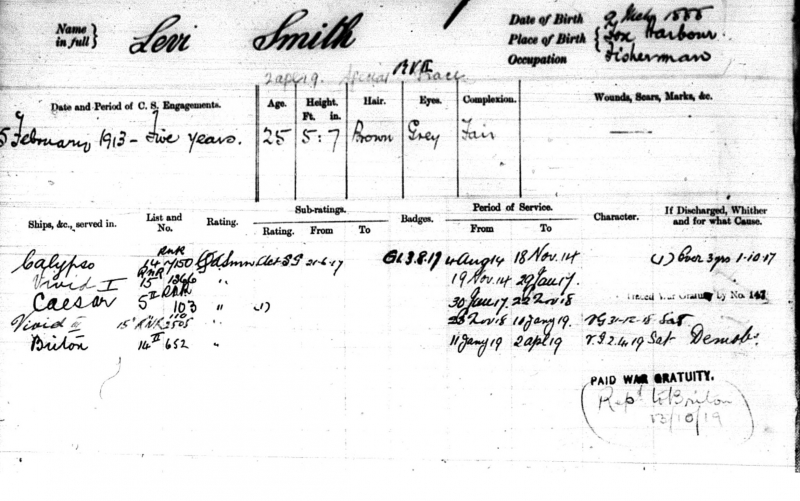 Name in full } Levi Smith
Date of Birth
Place of Birth { Fox Harbour.
Occupation Fisherman
2 apl 19. RVII
Date and Period of C. S. Engagements. Age. Height. Ft. in. Hair. Eyes. Complexion. Wounds, Scars, Marks, &c.
5 February, 1913 - Five years. 25 5:7 Brown Grey Fair
Ships, &c., served in. List and No. Rating. Sub-ratings. Rating. From To Badges. Period of Service. From To Character. If Discharged, Whither and for what Cause.
Calypso RNR Act SG 21-6-17 G1.3.8.17 4 Aug 14 18 Nov. 14 (1) Over 3 yrs 1-10-17
Vivid I 15 RNR " 19 Nov. 14 29 Jan 17.
Caesar 5 II RNR 103 " (1) 30 Jan 17. 22 Nov 18 War Gratuity by No.
Vivid III 15 RNR 2505 " 23 Nov 18 10 Jany 19. VG 31-12-18 Sat
Briton 14 II 652 " 11 Jany 19 2 apl 19 V.G 2.4.19 Sat Demob.
PAID WAR GRATUITY.
Repd to Briton
13/10/19